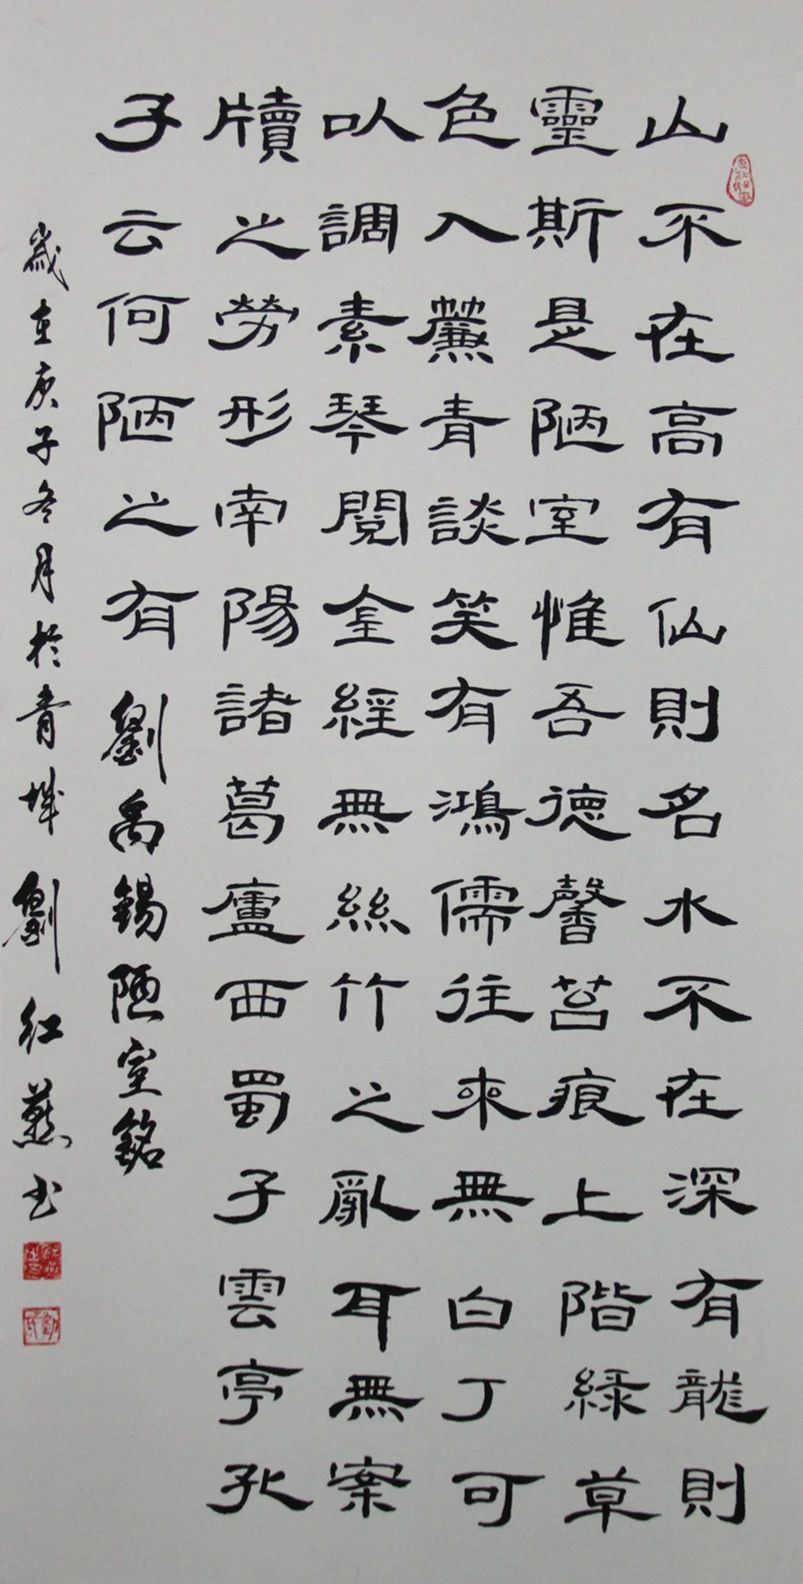 山不在高有仙則名水不在深有龍則
靈斯是陋室惟吾德馨苔痕上階緑草
色入簾青談笑有鴻儒往來無白丁可
以調素琴閱金經無絲竹之亂耳無案
牘之勞形南陽諸葛廬西蜀子雲亭孔
子云何陋之有 劉禹錫陋室銘
歲在庚子冬月於青城劉紅燕书